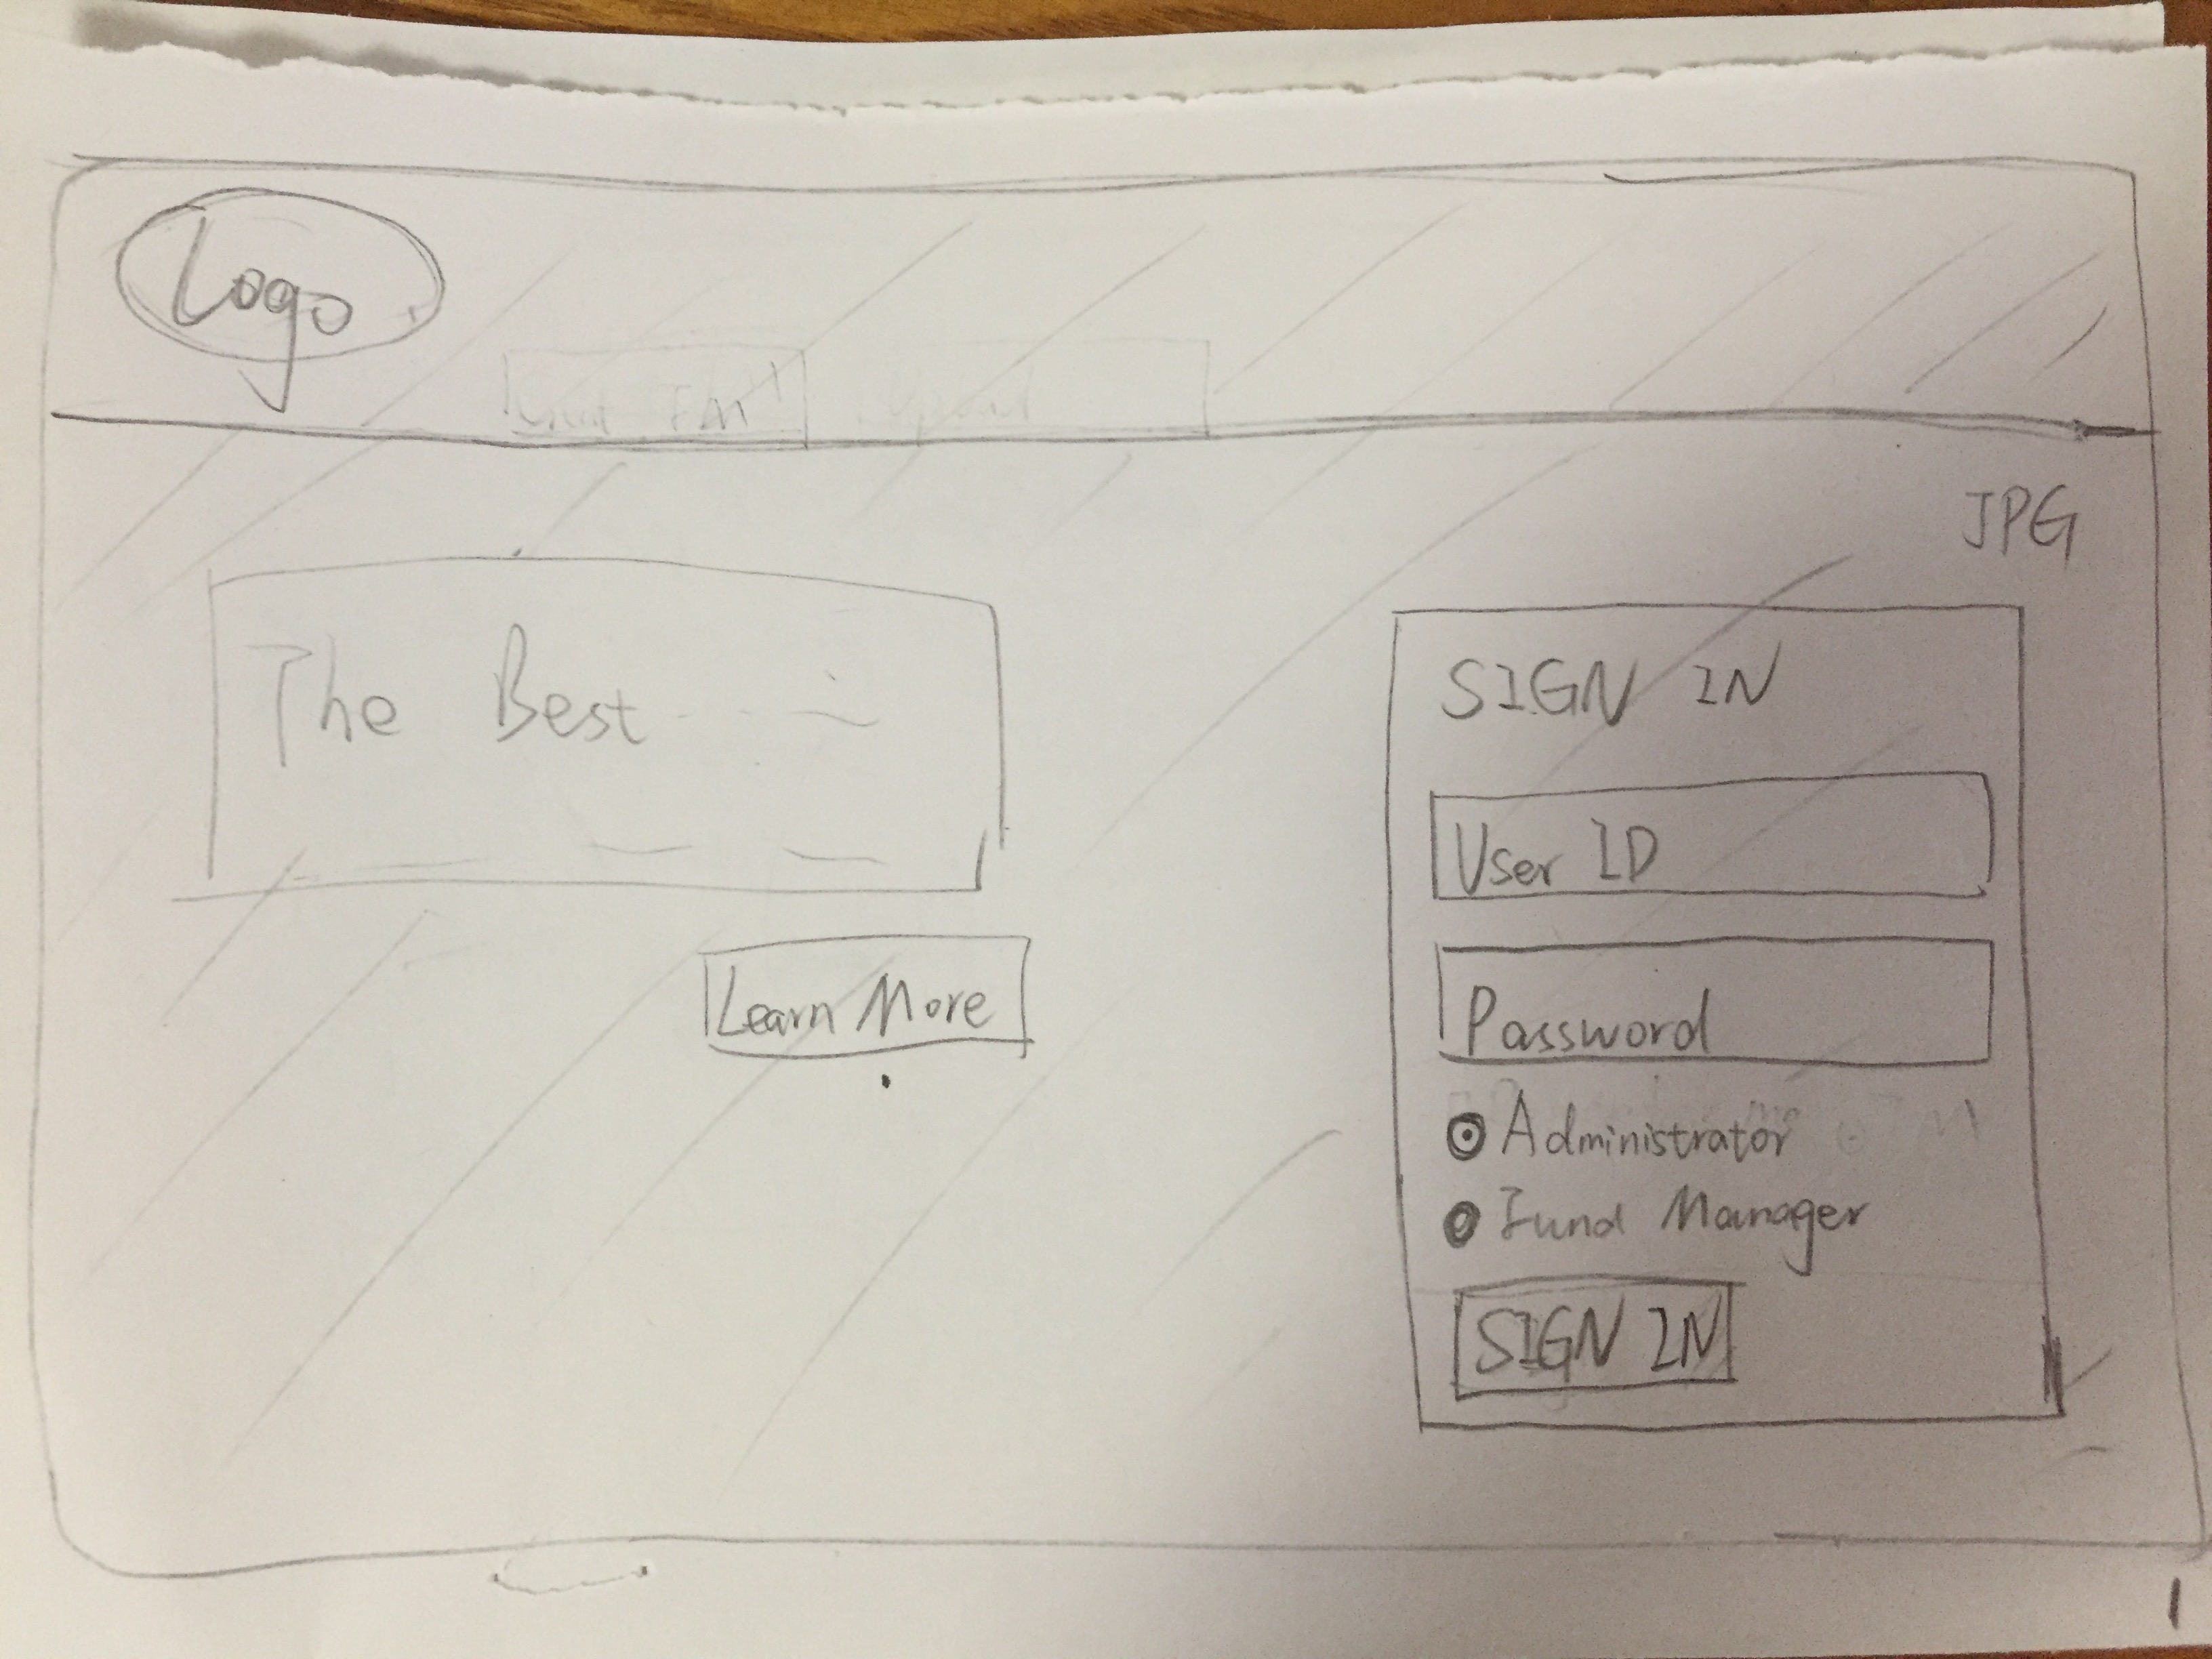 Logo
JPG
The Best
Learn More
SIGN IN
User ID
Password
Administrator
Fund Manager
SIGN IN
1